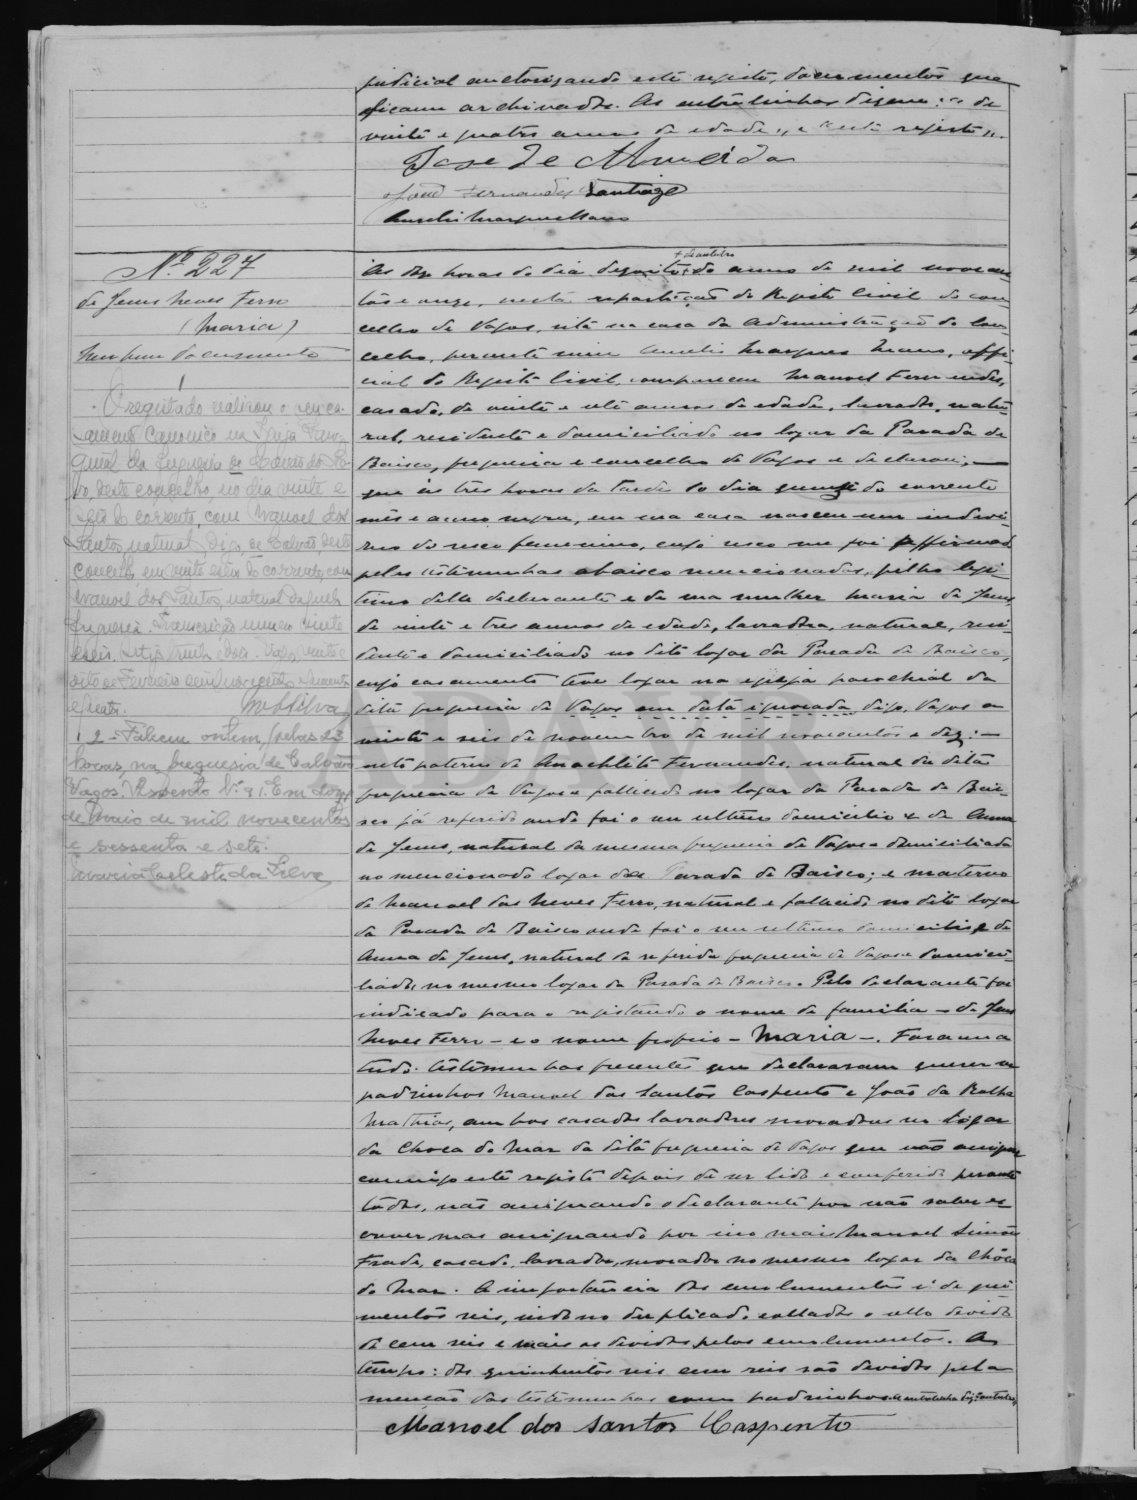 judicial auctorizando este registo, documentos que
ficam archivados. As entrelinhas dizem: "e de
vinte e quatro annos de edade", e "este registo".
Jose de Almeida
João Fernandes Santiago
Aurelio Marques Mano
Nº 227
de Jesus Neves Ferro
(Maria)
Nenhum documento
1
O registado realizou o seu ca-
samento canonico na Igreja Paro-
quial da freguesia de
deste concelho, no dia vinte e
seis do corrente, com Manoel dos
Santos, natural, digo, de Calvão, deste
concelho, em vinte e seis do corrente, com
Manoel dos Santos, natural daquela
freguesia. Transcrição numero vinte
e seis. Vagos, vinte e
oito de Fevereiro de mil novecentos e
e trinta. MSilva
2 - Faleceu ontem, pelas 23
horas, na freguesia de Calvão
Vagos. Assento Nº 91. Em
de Maio de mil novecentos
e sessenta e sete.
Maria Celeste da Silva
+ de outubro
Às horas do dia dezoito + do anno de mil novecen-
tos e onze, nesta repartição do Registo Civil do con-
celho de Vagos, sita na casa da Administração do Con-
celho, perante mim Aurelio Marques Mano, offi-
cial do Registo Civil, compareceu Manoel Fernandes,
casado, de vinte e sete annos de edade, lavrador, natu-
ral, residente e domiciliado no logar da Parada de
Baisco, freguesia e concelho de Vagos e declarou; —
que ás três horas da tarde do dia quinze do corrente
mês e anno, em sua casa nasceu um indivi-
duo do sexo femenino, cujo sexo me foi affirmado
pelas testimunhas abaisco mencionadas, filho legi-
timo delle declarante e de sua mulher Maria de Jesus,
de vinte e tres annos de edade, lavradora, natural, resi-
dente e domiciliada no dito logar da Parada de Baisco,
cujo casamento teve logar na igreja parochial da
dita freguesia de Vagos em data ignorada, digo, Vagos a
vinte e seis de novembro de mil novecentos e dez: —
neto paterno de Anachlito Fernandes, natural da dita
freguesia de Vagos e fallecido no logar da Parada de Bais-
co já referido onde foi o seu ultimo domicilio e de Anna
de Jesus, natural da mesma freguesia de Vagos e domiciliada
no mencionado logar da Parada de Baisco; e materno
de Manoel das Neves Ferro, natural e fallecido no dito logar
da Parada de Baisco onde foi o seu ultimo domicilio e de
Anna de Jesus, natural da referida freguesia de Vagos e domici-
liada no mesmo logar da Parada de Baisco. Pelo declarante foi
indicado para o registando o nome de familia — de Jesus
Neves Ferro — e o nome proprio — Maria —. Foram a
tudo testimunhas presentes que declararam querer ser
padrinhos Manoel dos Santos Caspento e João da Rocha
Mathias, ambos casados lavradores moradores no logar
da Choca do Mar da dita freguesia de Vagos que vão assignar
comigo este registo depois de ser lido e conferido perante
todos, não assignando o declarante por não saber es-
crever mas assignando por seu mais Manoel Simões
Frade, casado, lavrador, morador no mesmo logar da Chóca
do Mar. A importância dos emolumentos é de qui-
nhentos reis, indo no duplicado collados o sello devido
de cem reis e mais os devidos pelos emolumentos. Em
tempo: dos quinhentos reis cem reis são devidos pela
menção das testimunhas como padrinhos. A entrelinha diz: outubro
Manoel dos santos Caspento
ADAVR